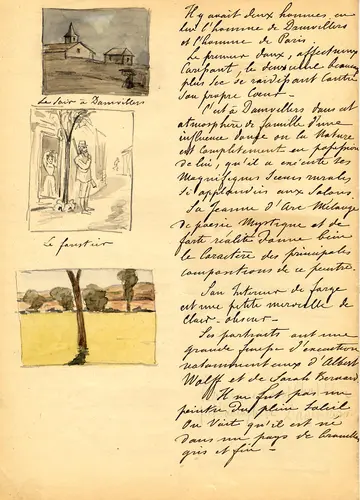 Il y avait deux hommes en
lui l'homme de Damvillers
et l'homme de Paris.
Le premier doux, affectueux,
le second beaucoup
plus sec se raidissant contre
son propre Cœur —
C'est à Damvillers dans cet
atmosphère de famille d'une
influence douce où la Nature
est complètement en possession
de lui, qu'il a exécuté ses
Magnifiques Scènes rurales,
si applaudies aux Salons.
Sa Jeanne d'Arc Mélange
de poésie Mystique et de
forte réalité donne bien
le Caractère des principales
compositions de ce peintre.
Son Intérieur de forge
est une petite merveille de
Clair-obscur —
Ses portraits ont une
grande d'exécution
notamment ceux d'Albert
Wolff et de Sarah Bernard
Il ne fut pas un
peintre du plein Soleil
On Voit qu'il est né
dans un pays de
gris et fin —
Le Soir à Damvillers
Le